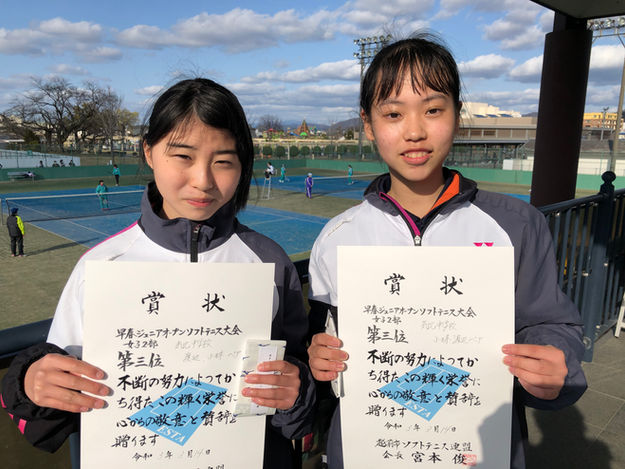 賞状
早春ジュニアオープンソフトテニス大会
女子2部
第三位
不断の努力によってか
ち得たこの輝く栄誉に
心からの敬意と賛辞を
贈ります
令和
賞状
早春ジュニアオープンソフトテニス大会
女子2部
第三位
不断の努力によってか
ち得たこの輝く栄誉に
心からの敬意と賛辞を
贈ります
令和 3年 3月14日
越前市ソフトテニス連盟
会長 宮本 俊